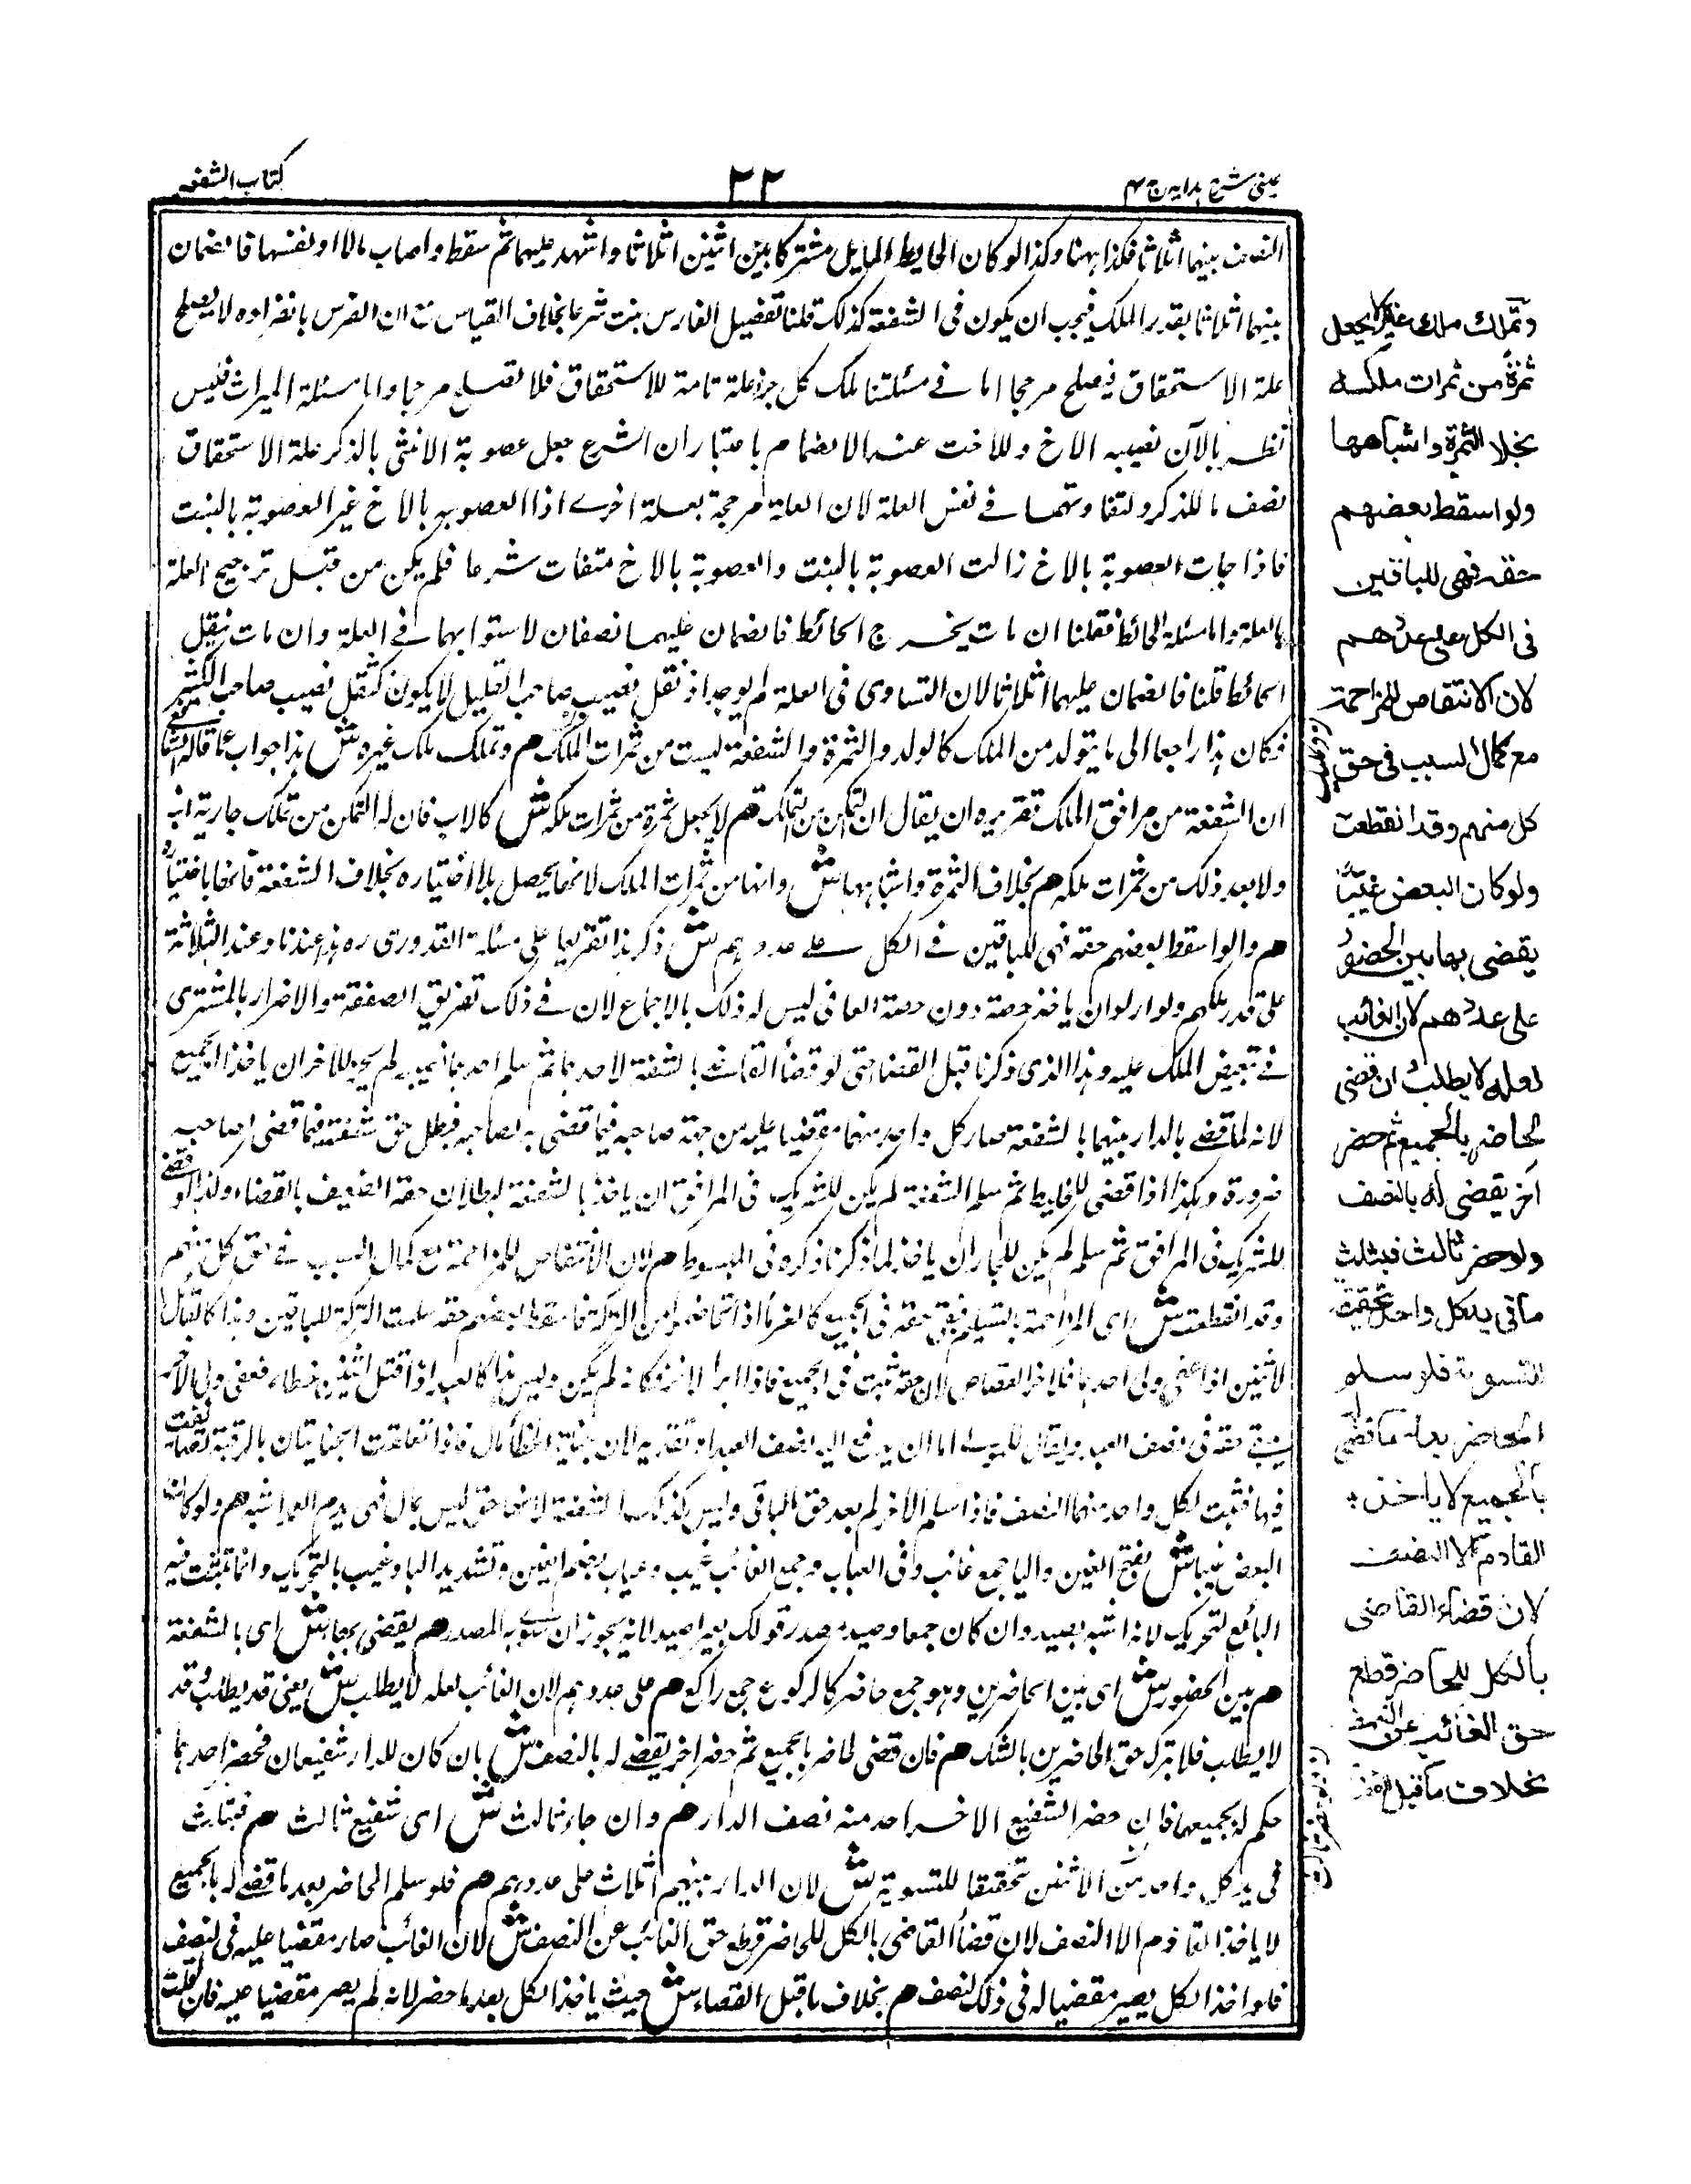 عینی شرح ہدایہ ج ۴
۲۲
کتاب الشفعہ
النصف بينهما اثلاثا فكذا ههنا وكذا لو كان الحايط المايل مشتركا بين اثنين اثلاثا واشهد عليهما ثم سقط واصاب مالا او نفسا فالضمان
بينهما اثلاثا بقدر الملك فيجب ان يكون فى الشفعة كذلك قلنا تفضيل الفارس بنت شرعا بخلاف القياس مع ان الفرس بانفراده لا يصلح
علة الاستحقاق فيصلح مرجحا اما فى مسئلتنا ملك كل جزء علة تامة للاستحقاق فلا تصلح مرجحا واما مسئلة الميراث فليس
بالآن نصيبه الاخ وللاخت عند الانضمام باعتبار ان الشرع جعل عصوبة الانثى بالذكر علة الاستحقاق
نصف ما للذكر ولتفاوتهما فى نفس العلة لان العلة مرجحة بعلة اخرى اذا العصوبة بالاخ غير العصوبة بالبنت
فاذا جات العصوبة بالاخ زالت العصوبة بالبنت والعصوبة بالاخ متفات شرعا فلم يكن من قبل ترجيح العلة
بالعلة واما مسئلة الحائط فقلنا ان مات يخرج الحائط فالضمان عليهما نصفان لاستوابهما فى العلة وان مات بنقل
الحائط قلنا فالضمان عليهما اثلاثا لان التساوى فى العلة لم يوجد اذ نقل نصيب صاحب القليل لا يكون كنقل نصيب صاحب الكثير
فكان هذا راجعا الى ما يتولد من الملك كالولد والثمرة والشفعة ليست من ثمرات الملك هم وتملك ملك غيره ش هذا جواب عما قاله الشافعى
ان الشفعة من مرافق الملك تقريره ان يقال ان التمكن من التملك هم لا يجعل ثمرة من ثمرات ملكه ش كالاب فان له التمكن من تملك جارية ابنه
ولا يعد ذلك من ثمرات ملكه هم بخلاف الثمرة واشباهها ش وانها من ثمرات الملك لانها يحصل بلا اختياره بخلاف الشفعة فانها باختياره
هم والوا سقط بعضهم حقه فهى للباقين فى الكل على عددهم ش ذكر هذا تفريعا على مسئلة القدورى ره هذا عندنا وعند الثلاثة
على قدر ملكهم ولو اراد ان ياخذ حصة دون حصة العافى ليس له ذلك بالاجماع لان فى ذلك تفريق الصفقة والاضرار بالمشترى
فى تبعيض الملك عليه وهذا الذى ذكرنا قبل القضاء حتى لو قضأ القاضى بالشفعة لاحدهما ثم سلم احدهما نصيبه لم يجز للاخر ان ياخذ الجميع
لانه لما قضى بالدار بينهما بالشفعة صار كل واحد منهما مقضيا عليه من جهة صاحبه فيما قضى به لصاحبه فبطل حق شفعته فيما قضى لصاحبه
ضرورة وهكذا اذا قضى للخليط ثم سلم الشفعة لم يكن للشريك فى المرافق ان ياخذ بالشفعة لبطلان حقه الضعيف بالقضاء وكذا لو قضى
للشريك فى المرافق ثم سلم لم يكن للجار ان ياخذ لما ذكرنا ذكره فى المبسوط هم لان الانتقاص للمزاحمة مع كمال السبب فى حق كل منهم
وقد انقطعت ش اى المزاحمة بالتسليم فبقى حقه فى الجميع كالغرمأ اذا تخاصموا من التركة فاسقط بعضهم حقه سلمت التركة للباقين وهذا
لاثنين اذا عفى ولى احدهما فللاخر القصاص لان حقه ثبت فى الجميع فاذا ابرا الاخر فكانه لم يكن وليس هذا كالعبد اذا قتل اثنين خطاء فعفى ولى
يبقى حقه فى نصف العبد ويقال للمولى اما ان يدفع اليه نصف العبد او تفديه لان جناية الخطأ مال فاذا تعلقت الجنايتان بالرقبة
فيها فثبت لكل واحد منهما النصف فاذا سلم الاخر لم يعد حق الباقى وليس كذلك الشفعة لانها حق ليس بمال فهى بدم العمد اشبه هم ولو كان
البعض غيبا ش بفتح الغين واليا جمع غائب وفى العباب وجمع الغائب غيب وغياب بضم الغين وتشديد اليا وغيب بالتحريك وانما تثبت فيه
اليا مع التحريك لانه اشبه بصيد وان كان جمعا وصيد مصدر قولك بعير اصيد لانه يجوز ان ينوى به المصدر هم يقضى بها ش اى بالشفعة
هم بين الحضور ش اى بين الحاضرين وهو جمع حاضر كالركوع جمع راكع هم على عددهم لان الغائب لعله لا يطلب ش يعنى قد يطلب وقد
لا يطلب فلا يترك حق الحاضرين بالشك هم فان قضى لحاضر بالجميع ثم حضر اخر يقضى له بالنصف ش بان كان للدار شفيعان فحضر احدهما
حكم له بجميعها فان حضر الشفيع الاخر احد منه نصف الدار هم وان جاء ثالث ش اى شفيع ثالث هم فبثلث
فى يد كل واحد من الاثنين تحقيقا للتسوية ش لان الدار بينهم اثلاث على عددهم هم فلو سلم الحاضر بعد ما قضى له بالجميع
لا ياخذ القادم الا النصف لان قضأ القاضى بالكل للحاضر قطع حق الغائب عن النصف ش لان الغائب صار مقضيا عليه فى النصف
فلو اخذ الكل يصير مقضيا له فى ذلك النصف هم بخلاف ما قبل القضاء ش حيث ياخذ الكل بعد ما حضر لانه لم يصر مقضيا عليه فان قلت
وتملك ملك غيره لا يجعل
ثمرة من ثمرات ملكه
بخلاف الثمرة واشباهها
ولو اسقط بعضهم
حقه فهى للباقين
فى الكل على عددهم
لان الانتقاص للمزاحمة
مع كمال السبب فى حق
كل منهم وقد انقطعت
ولو كان البعض غيبا
يقضى بها بين الحضور
على عددهم لان الغائب
لعله لا يطلب وان قضى
لحاضر بالجميع ثم حضر
آخر يقضى له بالنصف
ولو حضر ثالث فبثلث
ما فى يد كل واحد تحقيقا
للتسوية فلو سلم
الحاضر بعد ما قضى
بالجميع لا ياخذ
القادم الا النصف
لان قضاء القاضى
بالكل للحاضر قطع
حق الغائب عن النصف
بخلاف ما قبل القضاء